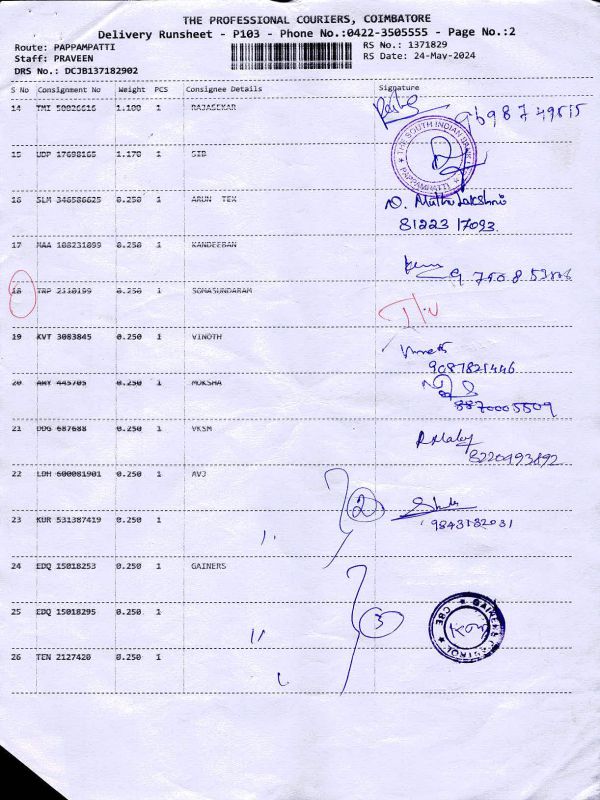 THE PROFESSIONAL COURIERS, COIMBATORE
Delivery Runsheet - P103 - Phone No.:0422-3505555 - Page No.:2
Route: PAPPAMPATTI
RS No.: 1371829
Staff: PRAVEEN
RS Date: 24-May-2024
DRS No.: DCJB137182902
S No Consignment No Weight PCS Consignee Details Signature
14 TMI 50026616 1.100 1 RAJASEKAR
9698749515
15 UDP 17698165 1.170 1 SIB
THE SOUTH INDIAN BANK
PAPPAMPATTI
16 SLM 346586625 0.250 1 ARUN TEX
81223 17093
17 MAA 108231099 0.250 1 KANDEEBAN
18 TRP 2310199 0.250 1 SOMASUNDARAM
19 KVT 3083845 0.250 1 VINOTH
9087821446
20 445705 0.250 1 MOKSHA
8870005509
21 DDG 687688 0.250 1 VKSM
8220493892
22 LDH 600081901 0.250 1 AVJ
2
23 KUR 531387419 0.250 1
9843182031
24 EDQ 15018253 0.250 1 GAINERS
25 EDQ 15018295 0.250 1
3
26 TEN 2127420 0.250 1